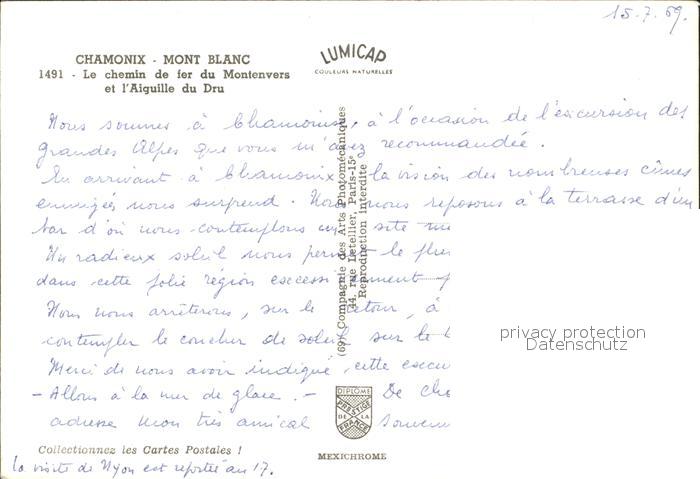 15.7.69.
CHAMONIX - MONT BLANC
1491 - Le chemin de fer du Montenvers
et l'Aiguille du Dru
LUMICAP
COULEURS NATURELLES
Nous sommes à Chamonix, à l'occasion de l'excursion des
grandes Alpes que vous m'avez recommandée.
En arrivant à Chamonix la vision des nombreuses cimes
enneigées nous surprend. Nous nous reposons à la terrasse d'un
bar d'où nous contemplons un site
Un radieux soleil nous le
dans cette jolie région
Nous nous arrêterons, sur le retour, à
contempler le coucher de soleil sur le
Merci de nous avoir indiqué cette
- Allons à la mer de glace. - De
adresse mon très amical
(69) Compagnie des Arts Photomécaniques
44, rue Letellier, Paris-15e
Reproduction interdite
privacy protection
Datenschutz
DIPLOME
PRESTIGE
DE LA
FRANCE
MEXICHROME
Collectionnez les Cartes Postales !
La visite de Nyon est reportée au 17.